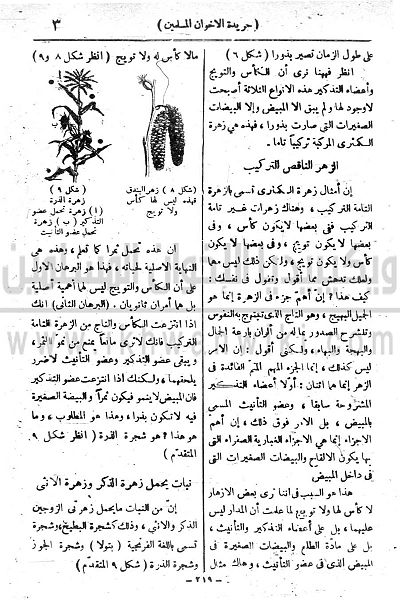 ( جريدة الاخوان المسلمين )
٣
على طول الزمان تصير بذورا ( شكل ٦ )
انظر فههنا ترى أن للكأس والتويج
وأعضاء التذكير هذه الانواع الثلاثة أصبحت
لاوجود لها ولم يبق الا المبيض والا البيضات
الصغيرات التى صارت بذورا ، فهذه هى زهرة
الكمثرى المركبة تركيبا تاما .
الزهر الناقص التركيب
إن أمثال زهرة الكمثرى تسمى بالزهرة
التامة التركيب ، وهناك زهرات غير تامة
التركيب فنى بعضها لايكون كأس ، وفى
بعضها لا يكون تويج ، وفى بعضها لا يكون
ولعلك تدهش مما أقول وتقول فى نفسك :
كيف هذا ? إن أهم جزء فى الزهرة إنما هو
الجميل البهيج ، وهو التاج الذى تبتهج به النفوس
وتنشرح الصدور بما له من ألوان بارعة الجمال
والبهجة والبهاء ، ولكنى أقول : إن الامر
ليس كذلك ، إنما الجزء المهم الدائم الفائدة فى
الزهر إنما هما اثنان : أولا أعضاء التذكير
المشروحة سابقا ، وعضو التأنيث المسمى
بالمبيض ، بل الامر فوق ذلك ، إن أهم
الأجزاء إنما هى الاجزاء الغبارية الصفراء التى
بها يكون الالقاح والبيضات الصغيرات التى
فى داخل المبيض
هذا هو السبب فى اننا نرى بعض الازهار
لا كأس لها ولا تويج لما علمت أن المدار ليس
عليهما ، بل على أعضاء التذكير والتأنيث ،
بل على مادة الطلع والبيضات الصغيرة فى
عضو التأنيث ، وهاك مثلا لذلك الزهر الذى
مالا كأس له ولا تويج ( انظر شكل ٨ و ٩ )
( شكل ٨ ) زهر البندق
فهذه ليس لها كأس
ولا تويج
( شكل ٩ )
زهرة الذرة
( ا ) زهرة تحمل عضو
التذكير ( ب ) زهرة
تحمل عضو التأنيث
ان هذه تحمل ثمرا كما تعلم ، وهذه هى
النهاية الاصلية لحياته ، فهذا هو البرهان الاول
على أن الكأس والتويج ليس لهما أهمية أصلية
بل هما أمران ثانويان . ( البرهان الثانى ) انك
اذا انتزعت الكأس والتاج من الزهرة التامة
التركيب فانك لاترى مانعا يمنع من نمو الثمر ،
ويبقى عضو التذكير وعضو التأنيث لا ضرر
يلحقهما ، ولكنك اذا انتزعت عضو التذكير
فان المبيض لاينمو فيكون ثمرا والبيضة الصغيرة
فيه لاتكون بذرا ، وهذا هو المطلوب ، وما
هو هذا ? هو شجرة الذرة ( انظر شكل ٩
المتقدم )
نبات يحمل زهرة الذكر وزهرة الانثى
إن من النبات مايحمل زهرتى الزوجين
الذكر والانثى ، وذلك كشجرة البطيخ ، وشجرة
تسمى باللغة الفرنجية ( بتولا ) وشجرة الجوز
وشجرة الذرة ( شكل ٩ المتقدم )
— ٢١٩ —